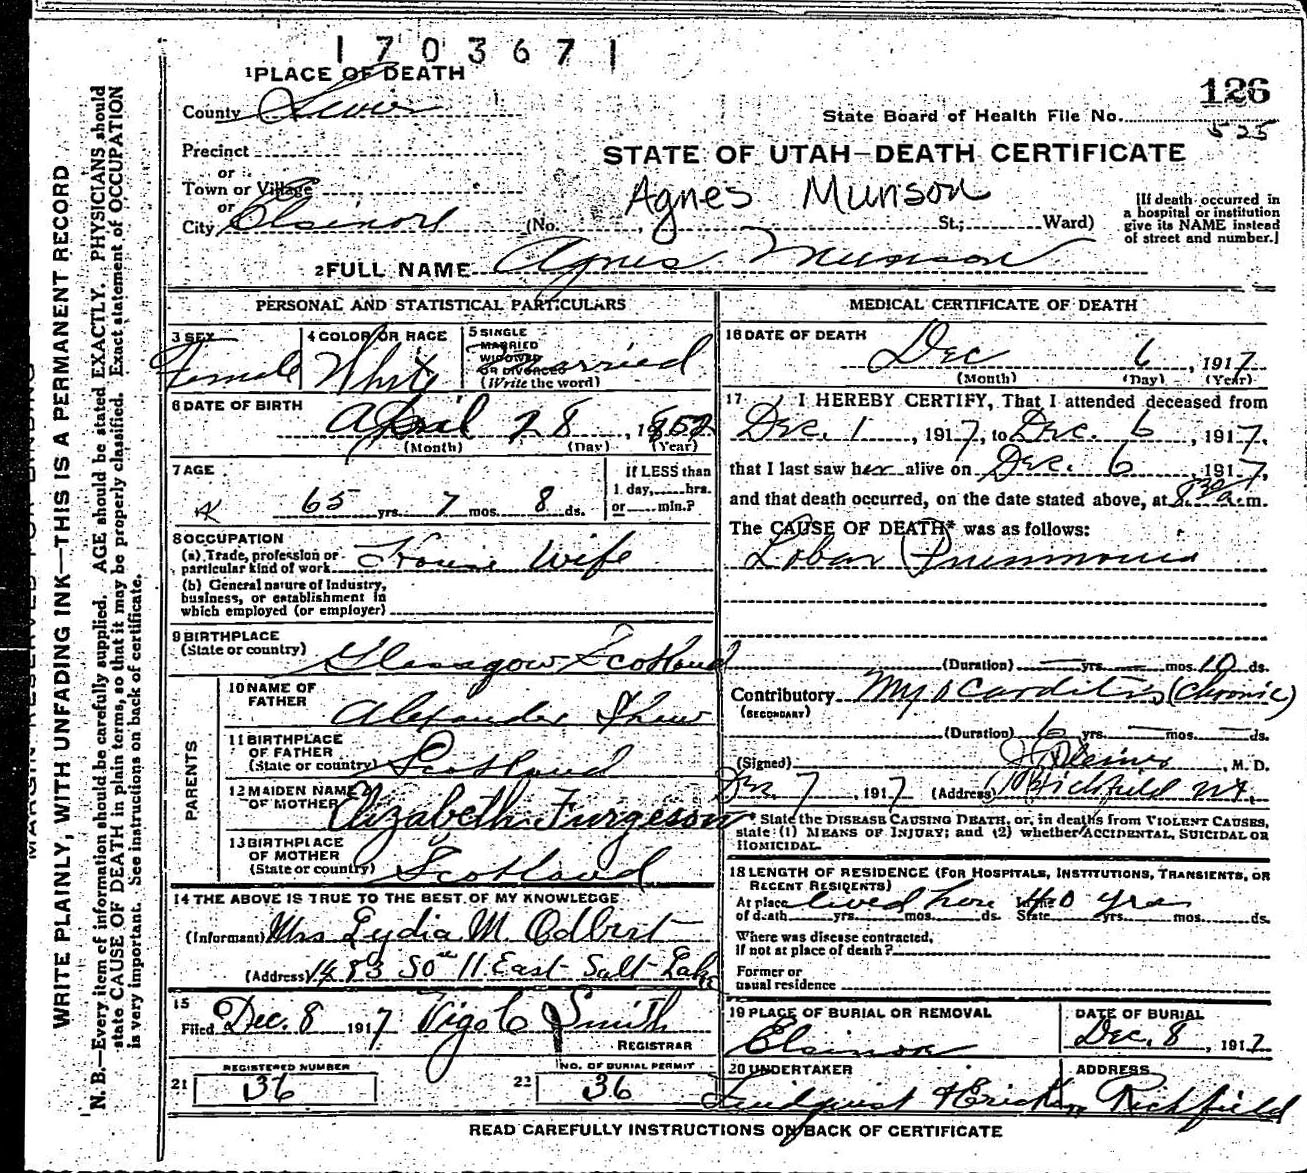 1703671
1 PLACE OF DEATH
126
County Sevier
State Board of Health File No. 525
Precinct
STATE OF UTAH—DEATH CERTIFICATE
or
Town or Village
Agnes Munson
or
City Elsinore (No. St.; Ward)
[If death occurred in
a hospital or institution
give its NAME instead
of street and number.]
2 FULL NAME Agnes Munson
PERSONAL AND STATISTICAL PARTICULARS
3 SEX
Female
4 COLOR OR RACE
White
5 SINGLE
MARRIED
WIDOWED
OR DIVORCED
(Write the word)
Married
6 DATE OF BIRTH
April 28, 1852
(Month) (Day) (Year)
7 AGE
65 yrs. 7 mos. 8 ds.
If LESS than
1 day, hrs.
or min.?
8 OCCUPATION
(a) Trade, profession or
particular kind of work House Wife
(b) General nature of Industry,
business, or establishment in
which employed (or employer)
9 BIRTHPLACE
(State or country) Glasgow Scotland
PARENTS
10 NAME OF
FATHER Alexander Shaw
11 BIRTHPLACE
OF FATHER
(State or country) Scotland
12 MAIDEN NAME
OF MOTHER Elizabeth Furgeson
13 BIRTHPLACE
OF MOTHER
(State or country) Scotland
14 THE ABOVE IS TRUE TO THE BEST OF MY KNOWLEDGE
(Informant) Mrs Lydia M. Odbert
(Address) 1483 So 11 East Salt Lake
15
Filed Dec. 8 1917 Vigo C Smith
REGISTRAR
21 REGISTERED NUMBER
36
22 NO. OF BURIAL PERMIT
36
MEDICAL CERTIFICATE OF DEATH
16 DATE OF DEATH
Dec 6, 1917
(Month) (Day) (Year)
17 I HEREBY CERTIFY, That I attended deceased from
Dec. 1, 1917, to Dec. 6, 1917,
that I last saw her alive on Dec. 6, 1917,
and that death occurred, on the date stated above, at 8 30 a.m.
The CAUSE OF DEATH* was as follows:
Lobar Pneumonia
(Duration) — yrs. — mos. 10 ds.
Contributory Myocarditis (Chronic)
(SECONDARY)
(Duration) 6 yrs. — mos. — ds.
(Signed) , M. D.
Dec 7, 1917 (Address) Richfield Ut.
* State the DISEASE CAUSING DEATH, or, in deaths from VIOLENT CAUSES,
state (1) MEANS OF INJURY; and (2) whether ACCIDENTAL, SUICIDAL OR
HOMICIDAL.
18 LENGTH OF RESIDENCE (FOR HOSPITALS, INSTITUTIONS, TRANSIENTS, OR
RECENT RESIDENTS)
At place In the
of death yrs. mos. ds. State yrs. mos. ds.
lived here 40 yrs
Where was disease contracted,
if not at place of death?
Former or
usual residence
19 PLACE OF BURIAL OR REMOVAL
Elsinore
DATE OF BURIAL
Dec. 8, 1917
20 UNDERTAKER
Lindquist & Erickson
ADDRESS
Richfield
READ CAREFULLY INSTRUCTIONS ON BACK OF CERTIFICATE
MARGIN RESERVED FOR BINDING
WRITE PLAINLY, WITH UNFADING INK—THIS IS A PERMANENT RECORD
N. B.—Every item of information should be carefully supplied. AGE should be stated EXACTLY. PHYSICIANS should
state CAUSE OF DEATH in plain terms, so that it may be properly classified. Exact statement of OCCUPATION
is very important. See instructions on back of certificate.